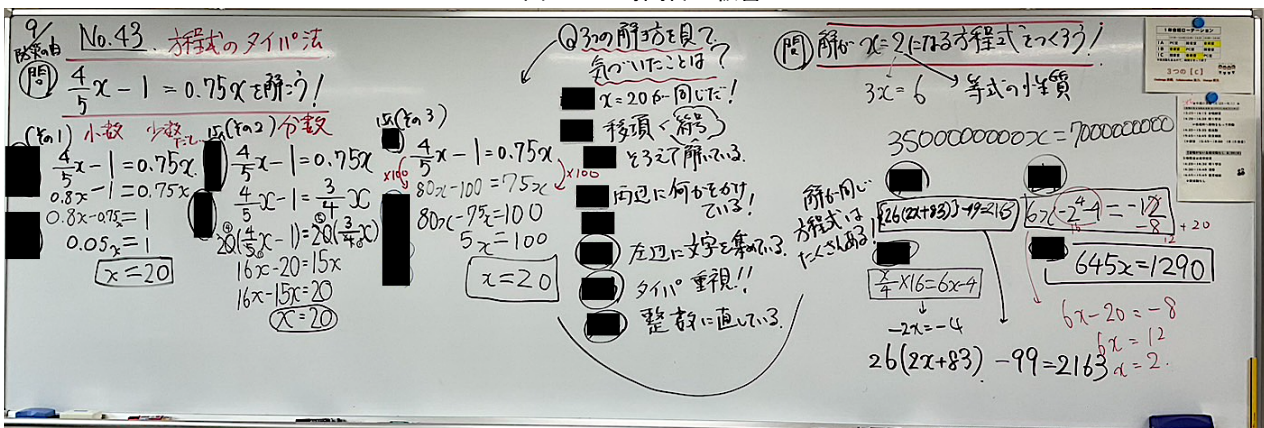 9/
No.43 方程式のタイパ法
問 4/5x-1=0.75xを解こう!
(その1) 小数
4/5x-1=0.75x
0.8x-1=0.75x
0.8x-0.75x=1
0.05x=1
x=20
(その2) 分数
4/5x-1=0.75x
4/5x-1=3/4x
20(4/5x-1)=20(3/4x)
16x-20=15x
16x-15x=20
x=20
(その3)
4/5x-1=0.75x
×100 ×100
80x-100=75x
80x-75x=100
5x=100
x=20
Q3つの解き方を見て
気づいたことは?
x=20が同じだ!
移項<符号>
そろえて解いている.
両辺に何かをかけ
ている!
左辺に文字を集めている.
タイパ重視!!
整数に直している.
問 解がx=2になる方程式をつくろう!
3x=6 等式の性質
35000000000x=70000000000
解が同じ
方程式は
たくさんある!
x/4×16=6x-4
-2x=-4
26(2x+83)-99=2163
645x=1290
+20
6x-20=-8
6x=12
x=2.
3つの[C]